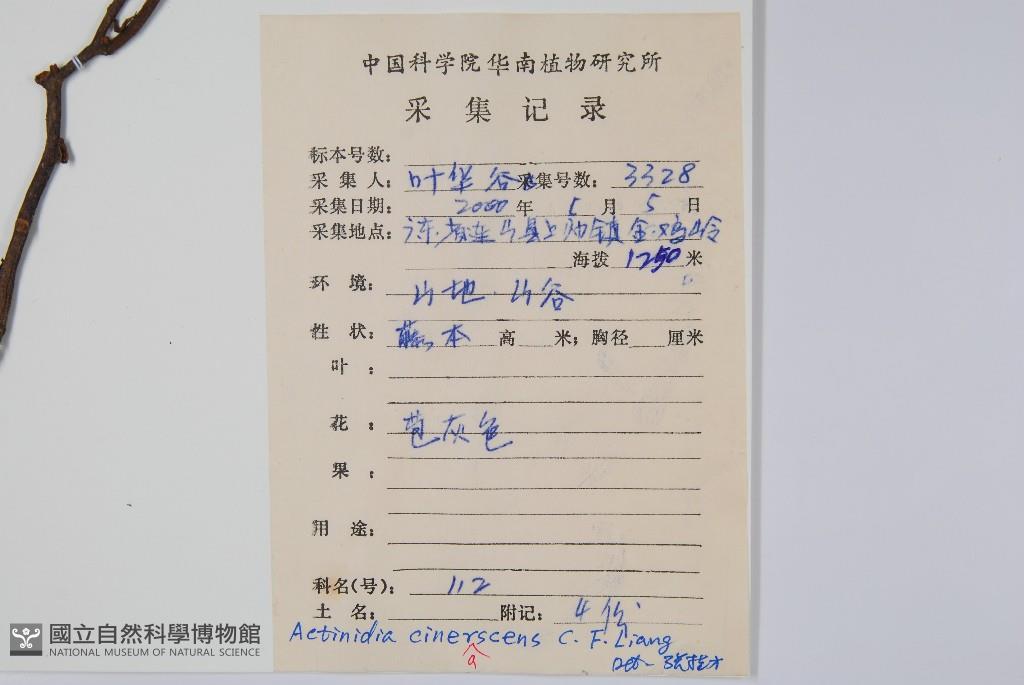 中国科学院华南植物研究所
采集记录
标本号数：
采集人：叶华谷 采集号数：3328
采集日期：2000年5月5日
采集地点：广东省连山县上帅镇金鸡岭
海拨1250米
环境：山地.山谷
性状：藤本 高 米；胸径 厘米
叶：
花：苞灰色
果：
用途：
科名(号)：112
土名： 附记：4份
Actinidia cinerscens C. F. Liang
a
Det.
國立自然科學博物館
NATIONAL MUSEUM OF NATURAL SCIENCE